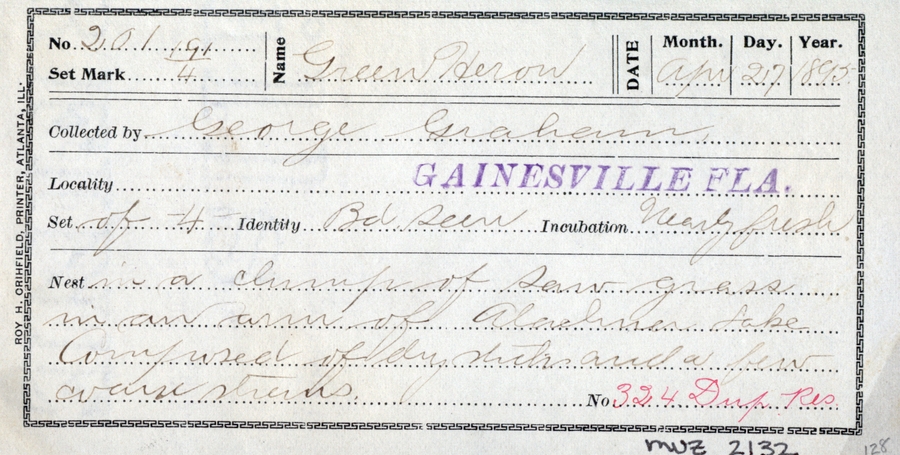 No. 201 19/4 Name Green Heron DATE Month. Day. Year.
Set Mark Apr 27 1895
Collected by George Graham
Locality GAINESVILLE FLA.
Set of 4 Identity Bd seen Incubation Nearly fresh
Nest in a clump of saw grass
in an arm of Alachua Lake
Composed of dry sticks and a few
coarse stems. No 324 Dup. Res.
MVZ 2132
128
ROY H. ORIHFIELD. PRINTER, ATLANTA, ILL.